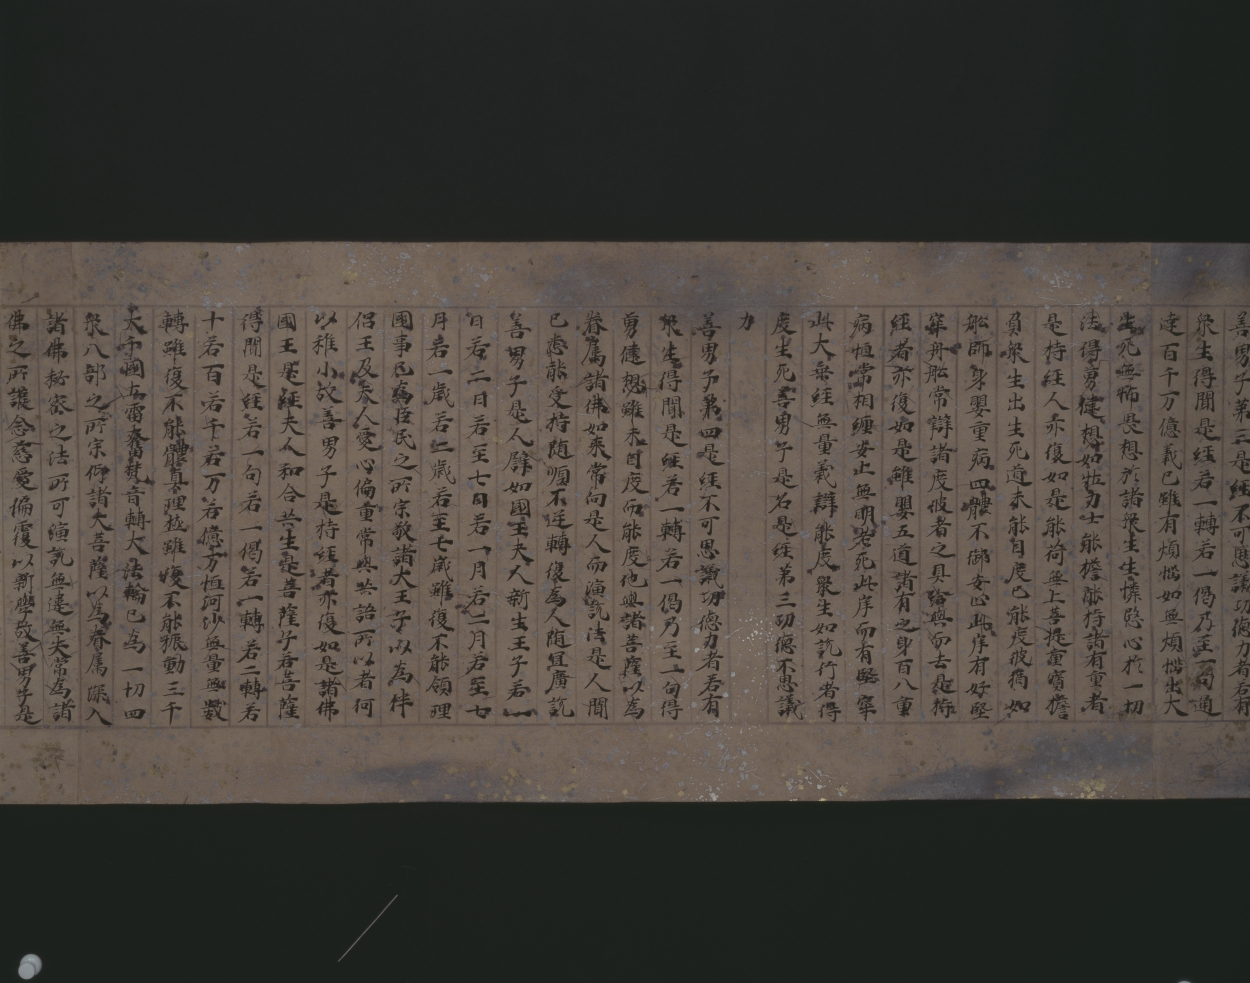 善男子第三是經不可思議功德力者若有
衆生得聞是經若一轉若一偈乃至一句通
達百千万億義已雖有煩惱如無煩惱出大
生死無怖畏想於諸衆生生憐愍心於一切
法得勇健想如壯力士能擔能持諸有重者
是持經人亦復如是能荷無上菩提重寶擔
負衆生出生死道未能自度已能度彼猶如
船師身嬰重病四體不御安止此岸有好堅
牢舟船常辯諸度彼者之具給與而去是持
經者亦復如是雖嬰五道諸有之身百八重
病恒常相纏安止無明老死此岸而有堅牢
此大乗經無量義辯能度衆生如說行者得
度生死善男子是名是經第三功德不思議
力
善男子第四是經不可思議功德力者若有
衆生得聞是經若一轉若一偈乃至一句得
勇健想雖未自度而能度他與諸菩薩以為
眷属諸佛如来常向是人而演說法是人聞
已悉能受持随順不逆轉復為人随宜廣說
善男子是人譬如國王夫人新生王子若一
日若二日若至七日若一月若二月若至七
月若一歳若二歳若至七歳雖復不能領理
國事已為臣民之所宗敬諸大王子以為伴
侣王及夫人愛心偏重常與共語所以者何
以稚小故善男子是持經者亦復如是諸佛
國王是經夫人和合共生是菩薩子若菩薩
得聞是經若一句若一偈若一轉若二轉若
十若百若千若万若億万恒河沙無量無數
轉雖復不能體真理極雖復不能振動三千
大千國土雷奮梵音轉大法輪已為一切四
衆八部之所宗仰諸大菩薩以為眷属深入
諸佛秘密之法所可演說無違無失常為諸
佛之所護念慈愛偏覆以新學故善男子是